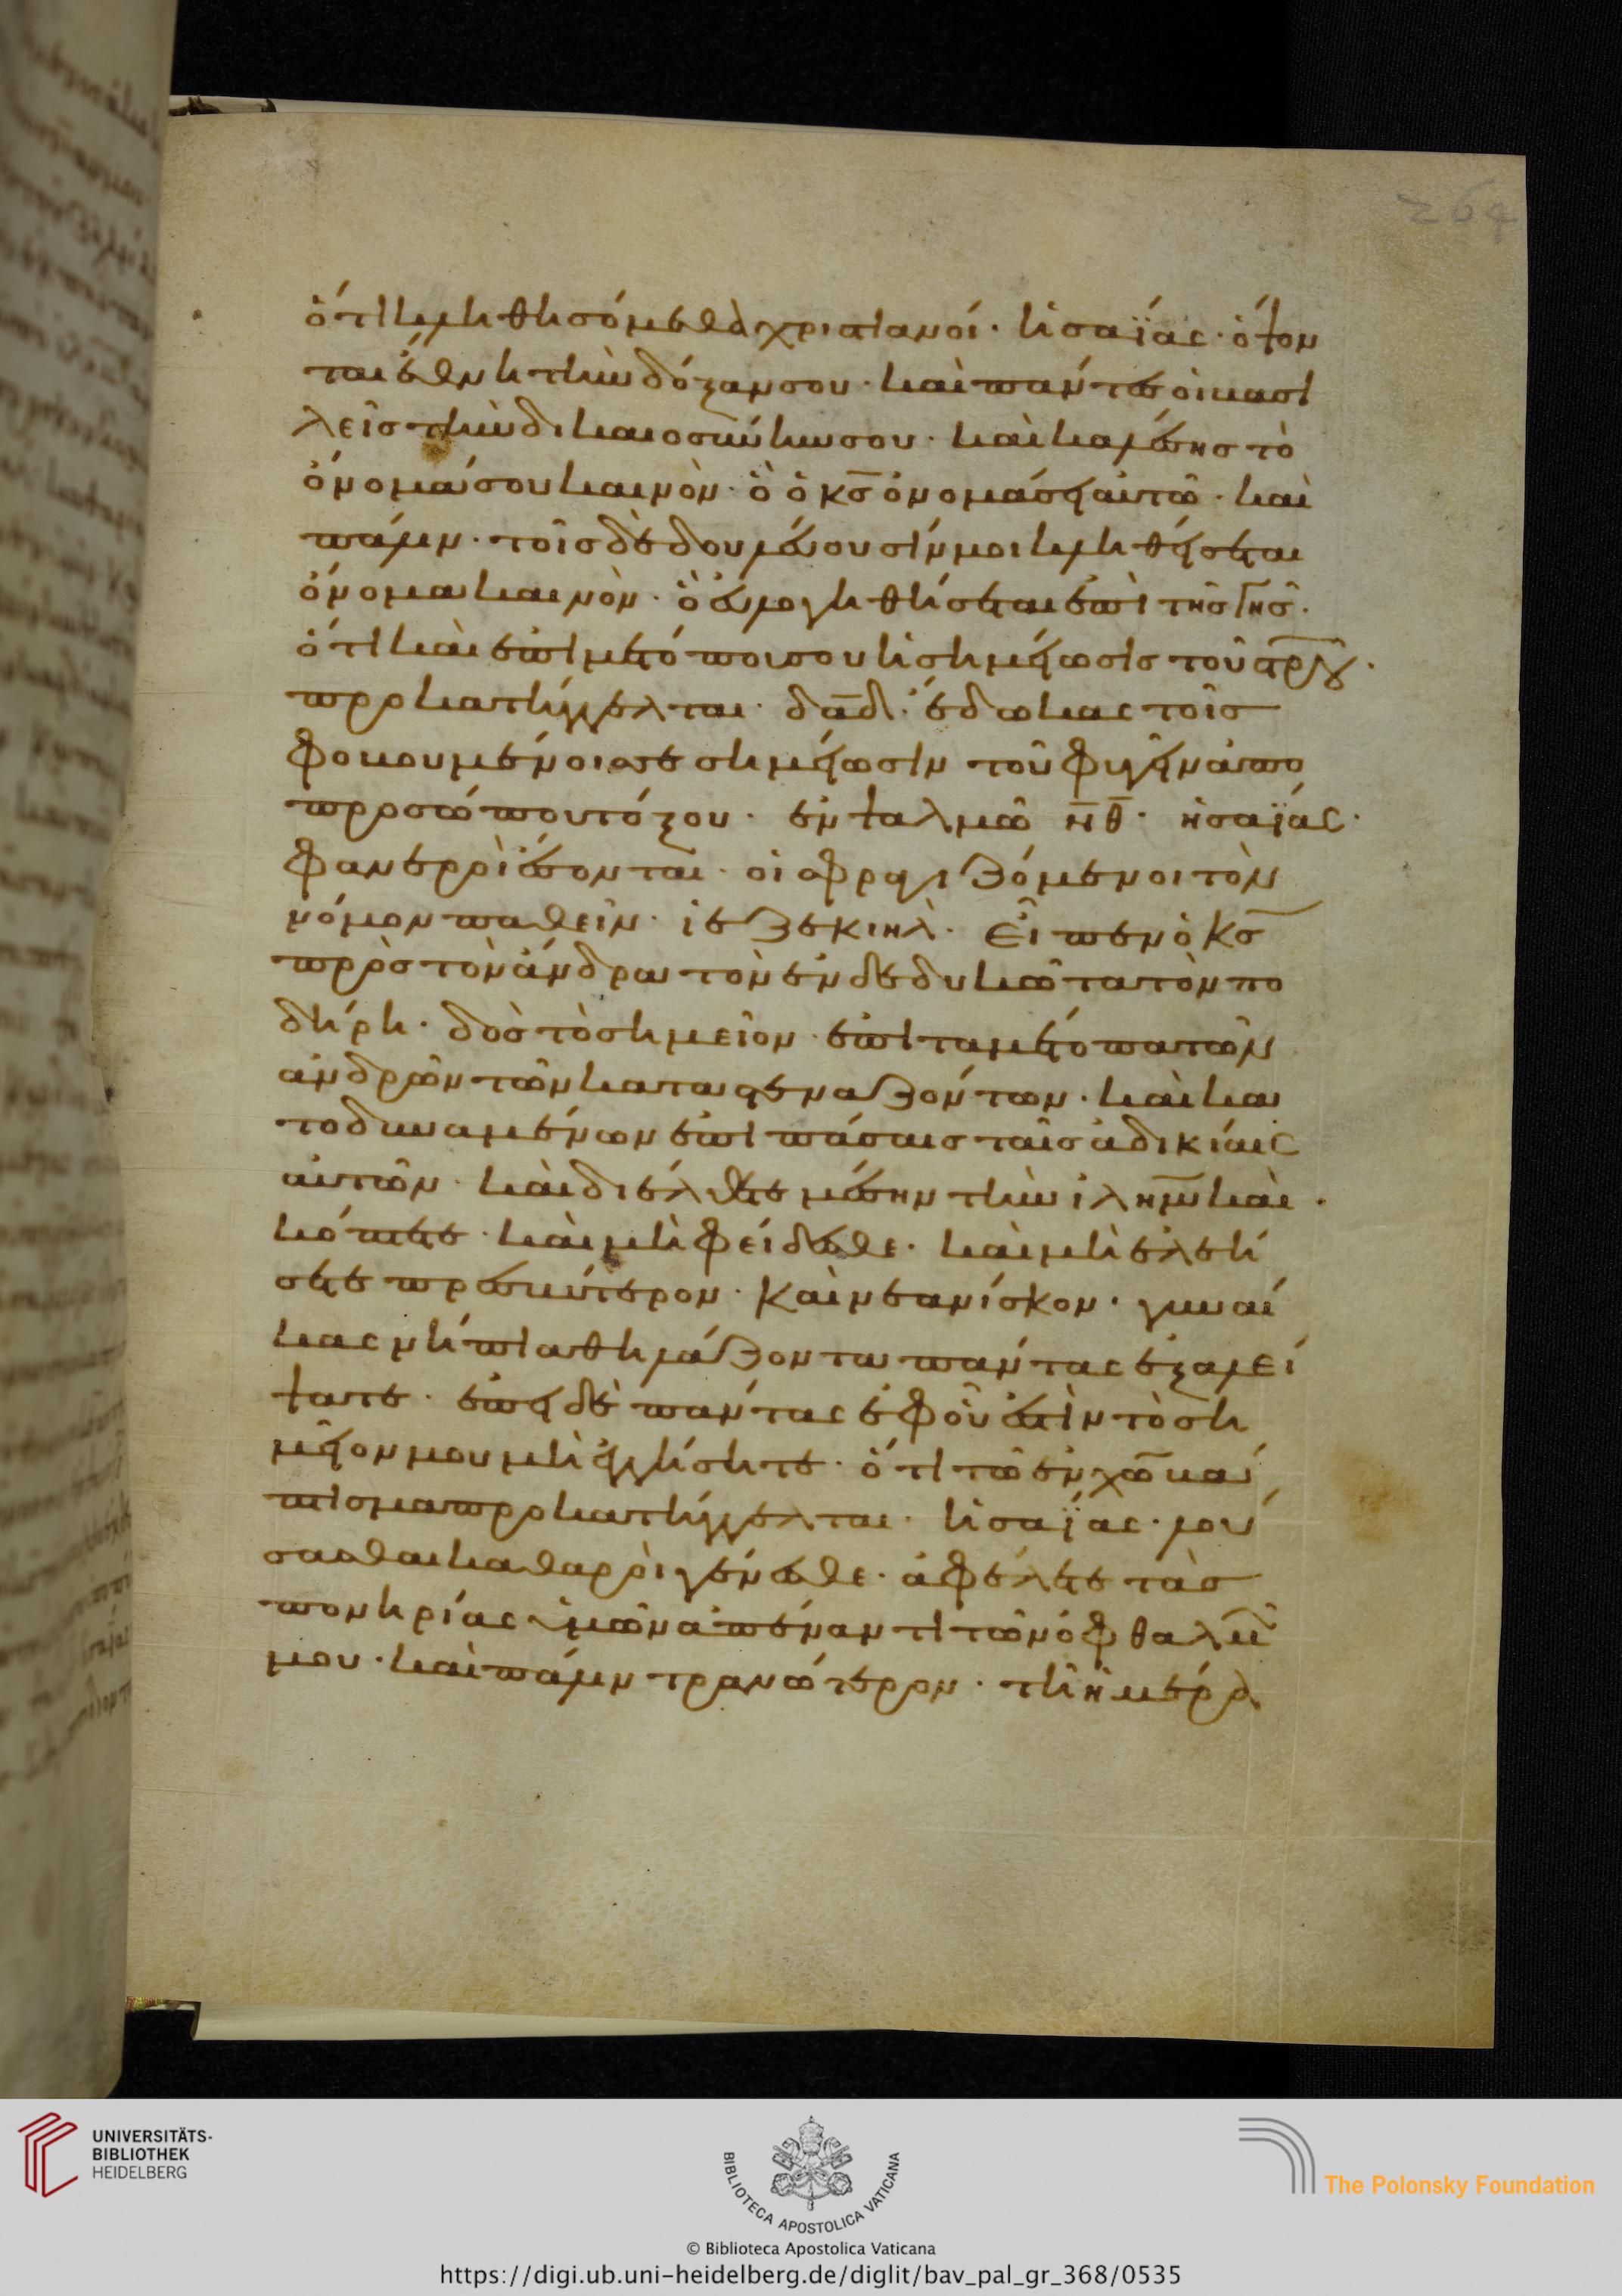 264
ὅτι κληθησόμεθα χριστιανοί· ἠσαΐας· ὄψον
ται ἔθνη τὴν δόξαν σου· καὶ πάντες οἱ βασι
λεῖς τὴν δικαιοσύνην σου· καὶ καλέσης τὸ
ὄνομά σου καινὸν· ὃ ὁ κς̅ ὀνομάσει αὐτῶ· καὶ
πάλιν· τοῖς δὲ δουλεύουσίν μοι κληθήσεται
ὄνομα καινὸν· ὃ εὐλογηθήσεται ἐπὶ τῆς γῆς·
ὅτι καὶ ἐπὶ μετόπου ἡ σημείωσις τοῦ στρου̅
προκατήγγελται· δα̅δ· ἔδωκας τοῖς
φοβουμένοις σε σημείωσιν τοῦ φυγεῖν ἀπο
προσώπου τόξου· ἐν ψαλμῶ ν̅θ̅· ἠσαΐας·
φανεροὶ ἔσονται· οἱ σφραγιζόμενοι τὸν
νόμον μαθεῖν· ἰεζεκιὴλ· Εἶπεν ὁ κς̅
πρὸς τὸν ἄνδρα τὸν ἐνδεδυκῶτα τὸν πο
δήρη· δὸς τὸ σημεῖον ἐπὶ τα μέτοπα τῶν
ἀνδρῶν τῶν καταστεναζόντων· καὶ κα
τοδυναμένων ἐπὶ πάσαις ταῖς ἀδικίαις
αὐτῶν· καὶ διέλθετε μέσην τὴν ἰλη̅μ καὶ
κόπτετε· καὶ μὴ φείδεσθε· καὶ μὴ ἐλεή
σετε πρεσβύτερον· καὶ νεανίσκον· γυναί
κας νήπια θηλάζοντα πάντας ἐξαλεί
ψατε· ἐπεὶ δὲ πάντας ἐφ οὓ ἐστὶν τὸ ση
μεῖον μου μὴ ἐγγίσητε· ὅτι τῶ ἐν χω̅ βά
πτισμα προκατήγγελται· ἠσαΐας· λού
σασθαι καθαροὶ γένεσθε· ἀφέλετε τὰς
πονηρίας ὑμῶν ἀπέναντι τῶν ὀφθαλμῶ̅
μου· καὶ πάλιν τρανώτερον· τῆ ἡμέρα
UNIVERSITÄTS-
BIBLIOTHEK
HEIDELBERG
BIBLIOTECA APOSTOLICA VATICANA
The Polonsky Foundation
© Biblioteca Apostolica Vaticana
https://digi.ub.uni-heidelberg.de/diglit/bav_pal_gr_368/0535